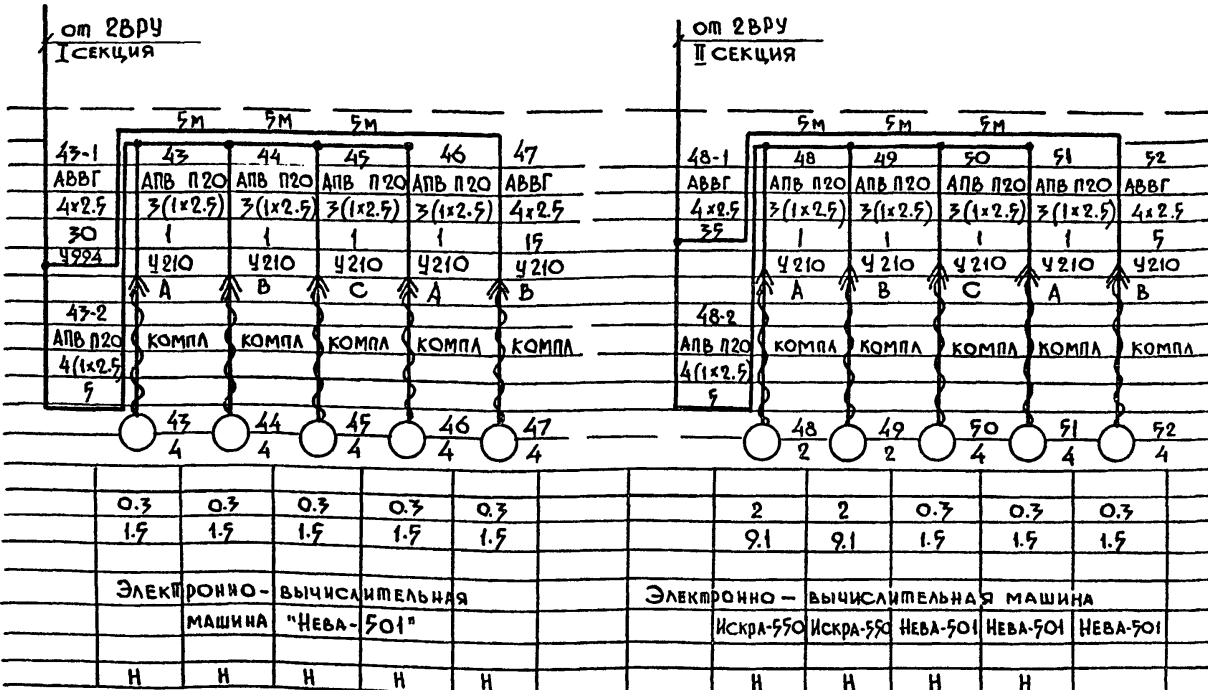 от 2ВРУ
I СЕКЦИЯ
5м 5м 5м
43-1 43 44 45 46 47
АВВГ АПВ П20 АПВ П20 АПВ П20 АПВ П20 АВВГ
4x2.5 3(1x2.5) 3(1x2.5) 3(1x2.5) 3(1x2.5) 4x2.5
30 1 1 1 1 15
У994 У210 У210 У210 У210 У210
А В С А В
43-2
АПВ П20 КОМПЛ КОМПЛ КОМПЛ КОМПЛ КОМПЛ
4(1x2.5)
5
43 44 45 46 47
4 4 4 4 4
0.3 0.3 0.3 0.3 0.3
1.5 1.5 1.5 1.5 1.5
ЭЛЕКТРОННО-ВЫЧИСЛИТЕЛЬНАЯ
МАШИНА "НЕВА-501"
Н Н Н Н Н
от 2ВРУ
II СЕКЦИЯ
5м 5м 5м
48-1 48 49 50 51 52
АВВГ АПВ П20 АПВ П20 АПВ П20 АПВ П20 АВВГ
4x2.5 3(1x2.5) 3(1x2.5) 3(1x2.5) 3(1x2.5) 4x2.5
35 1 1 1 1 5
У210 У210 У210 У210 У210
А В С А В
48-2
АПВ П20 КОМПЛ КОМПЛ КОМПЛ КОМПЛ КОМПЛ
4(1x2.5)
5
48 49 50 51 52
2 2 4 4 4
2 2 0.3 0.3 0.3
9.1 9.1 1.5 1.5 1.5
ЭЛЕКТРОННО-ВЫЧИСЛИТЕЛЬНАЯ МАШИНА
ИСКРА-550 ИСКРА-550 НЕВА-501 НЕВА-501 НЕВА-501
Н Н Н Н